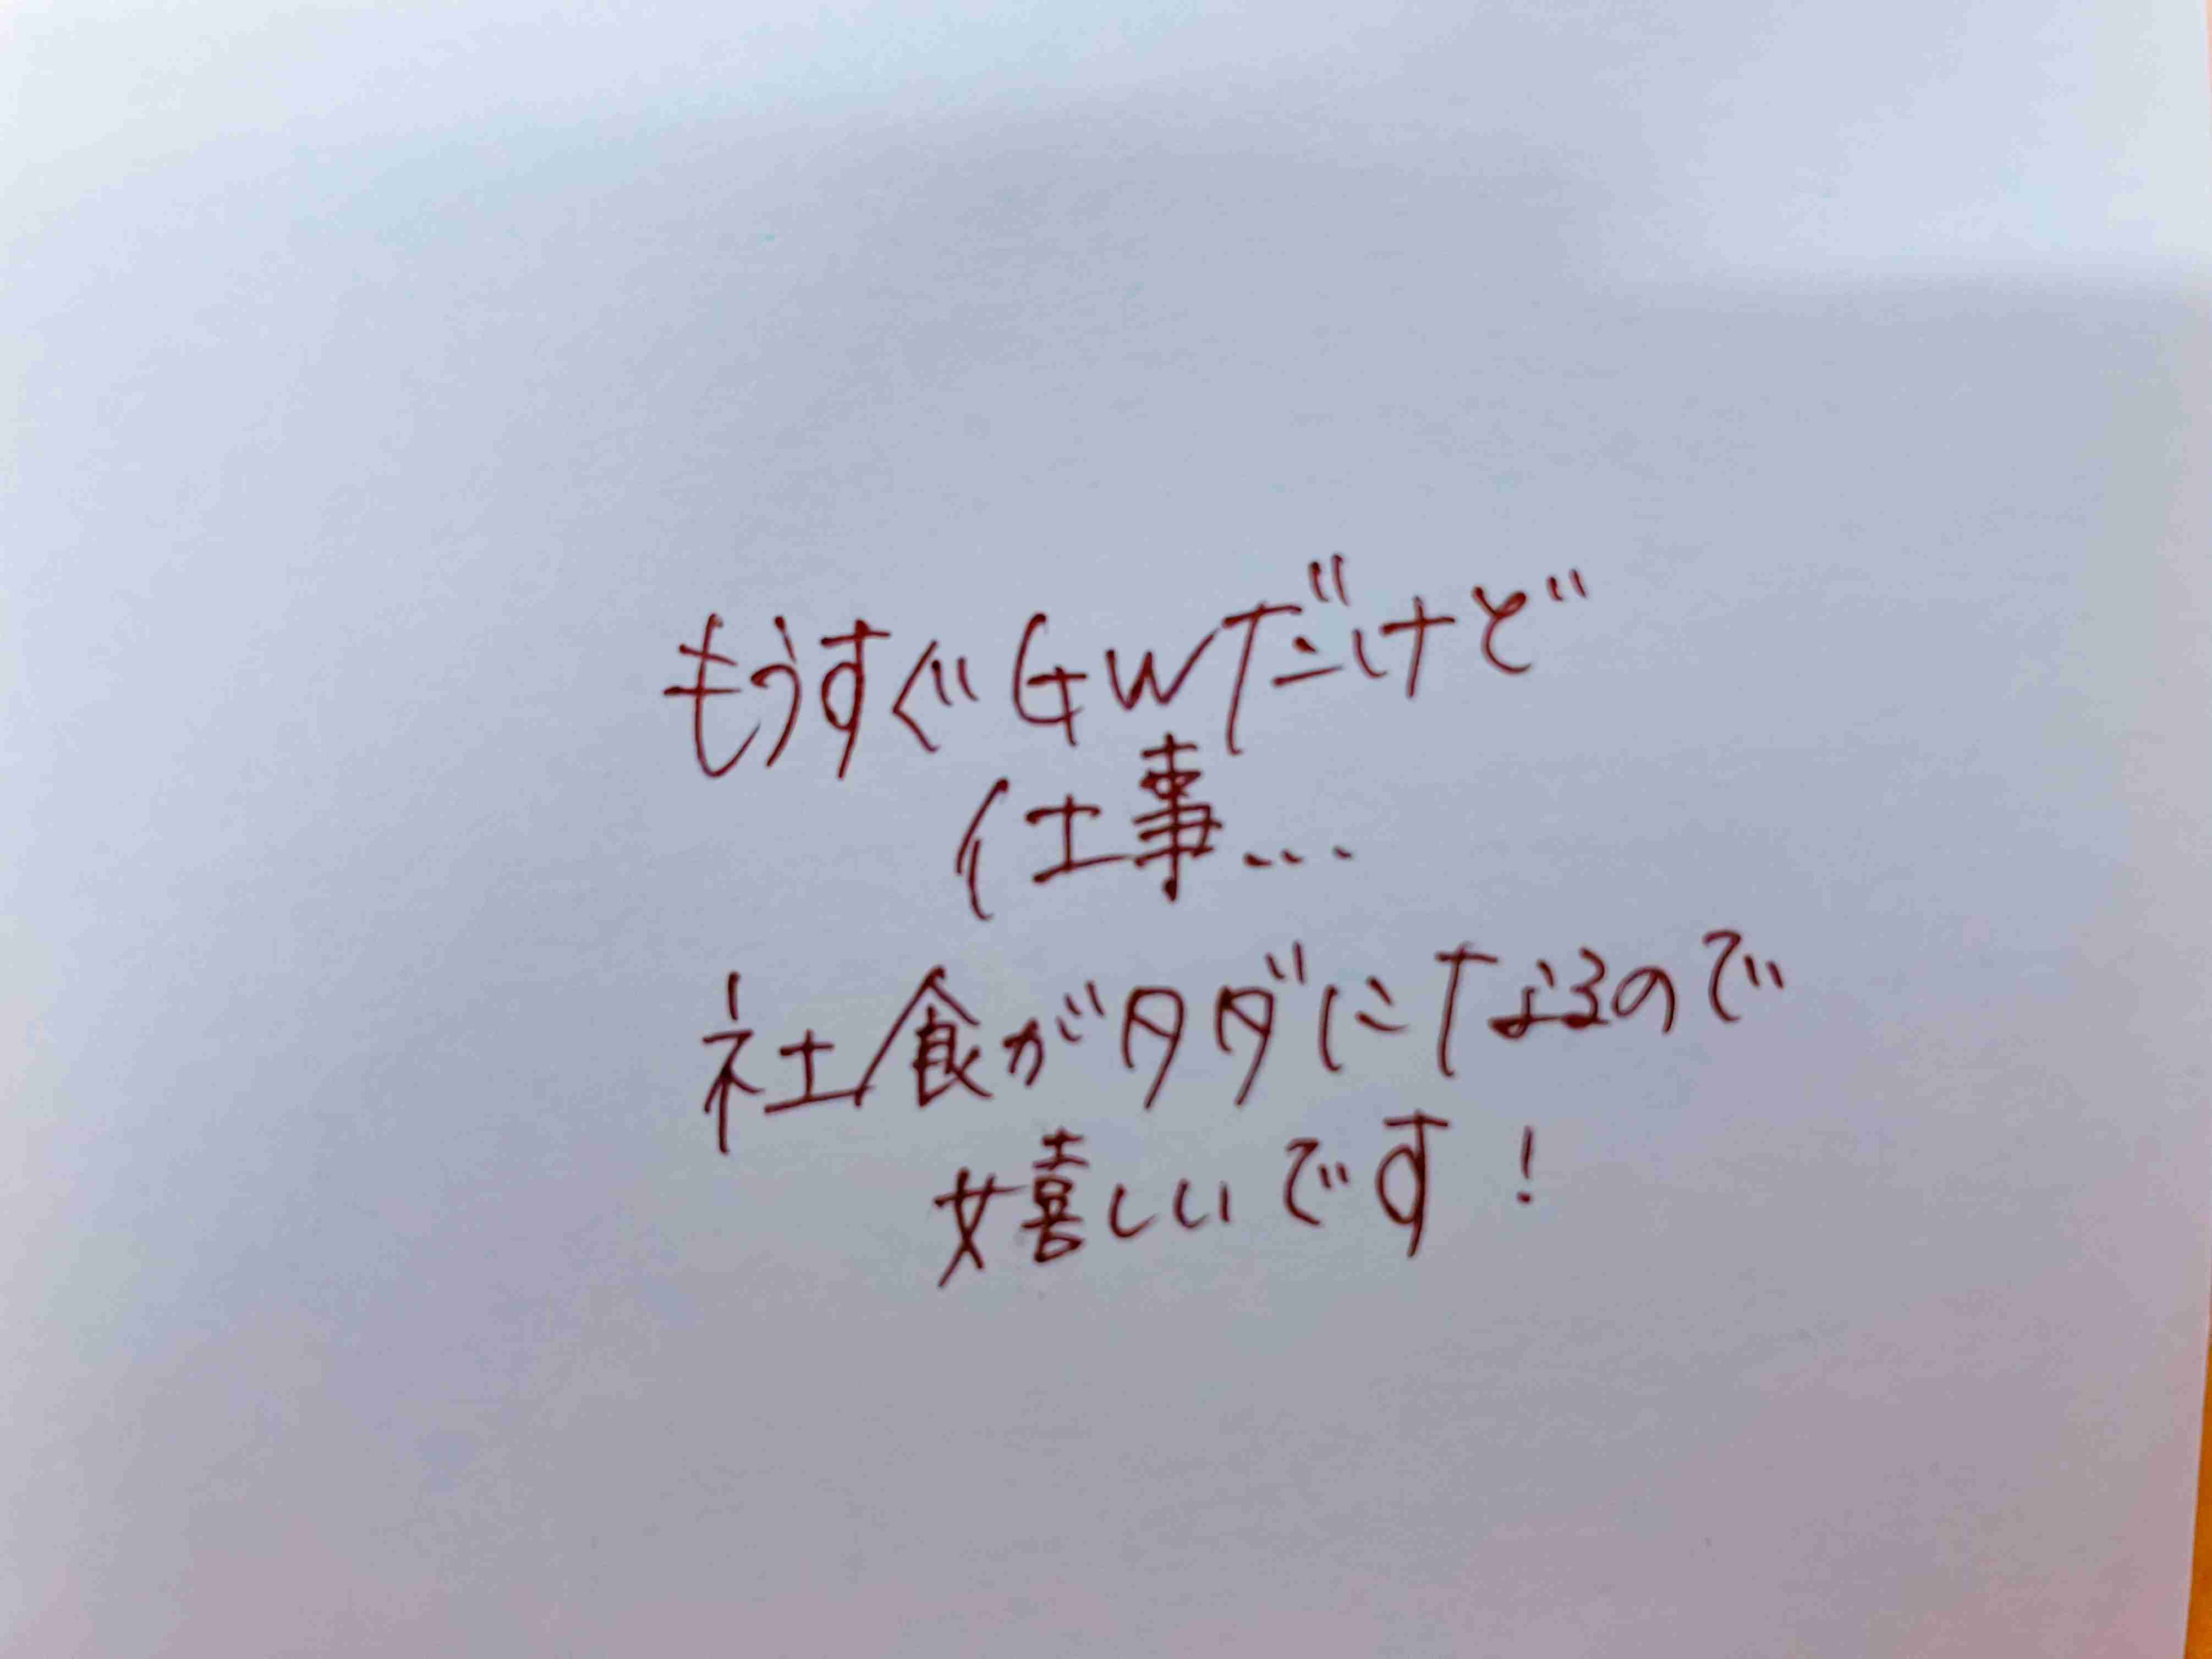 もうすぐGWだけど
仕事...
社食がタダになるので
嬉しいです!